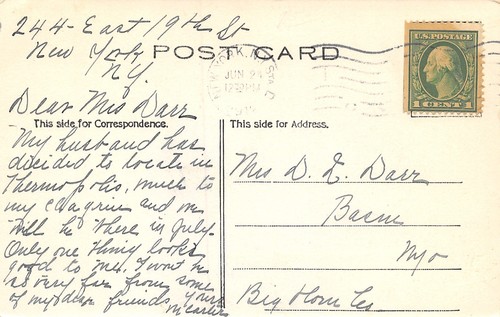 244 - East 19th St
New York
NY.
POST CARD
NEW YORK, N.Y. STA. C
JUN 24
12 30 PM
U.S. POSTAGE
1 CENT 1
Dear Mrs Darr
This side for Correspondence.
My husband has
decided to locate in
Thermopolis, much to
my chagrin and we
will be there in July
Only one thing looks
good to me. I won't be
so very far from some
of my dear friends. Yours
This side for Address.
Mrs D. L. Darr
Basin
Wyo
Big Horn Co